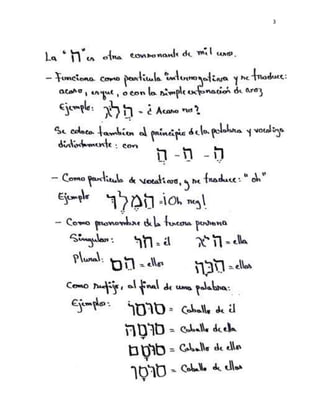 3
La "ה" es otra consonante de mil usos.
- Funciona como partícula interrogativa y se traduce:
acaso, es que, o con la simple entonación de voz
Ejemplo: הֲלֹא = ¿Acaso no?
Se coloca también al principio de la palabra y vocaliza
distintamente: con
ה - ה - ה
- Como partícula de vocativo, y se traduce: "oh"
Ejemplo הַמֶּלֶךְ = ¡Oh rey!
- Como pronombre de la tercera persona
Singular: הוּא = él הִיא = ella
Plural: הֵם = ellos הֵנָּה = ellas
Como sufijo, al final de una palabra:
Ejemplos: סוּסוֹ = Caballo de él
סוּסָהּ = Caballo de ella
סוּסָם = Caballo de ellos
סוּסָן = Caballo de ellas